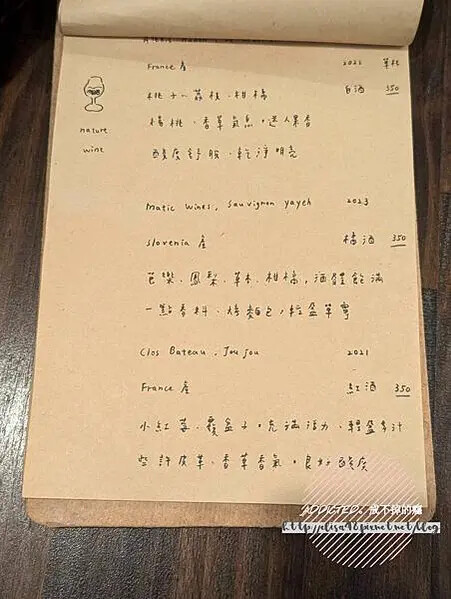 France 產 2022 單杯
白酒 350
桃子、荔枝、柑橘
nature
wine
楊桃、香草氣息,迷人果香
酸度舒服、乾淨明亮
Matic Wines, Sauvignon yayeh 2023
Slovenia 產 橘酒 350
芭樂、鳳梨、草本、柑橘,酒體飽滿
一點香料、烤麵包,輕盈單寧
Clos Bateau, Jou Jou 2021
France 產 紅酒 350
小紅莓、覆盆子,充滿活力、輕盈多汁
些許皮革、香草香氣,良好酸度
ADDICTED. 戒不掉的癮
http://elisa98.pixnet.net/blog